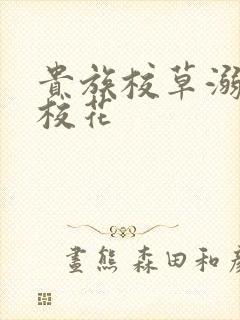 貴族校草溺
校花
畫熊 森田和彥